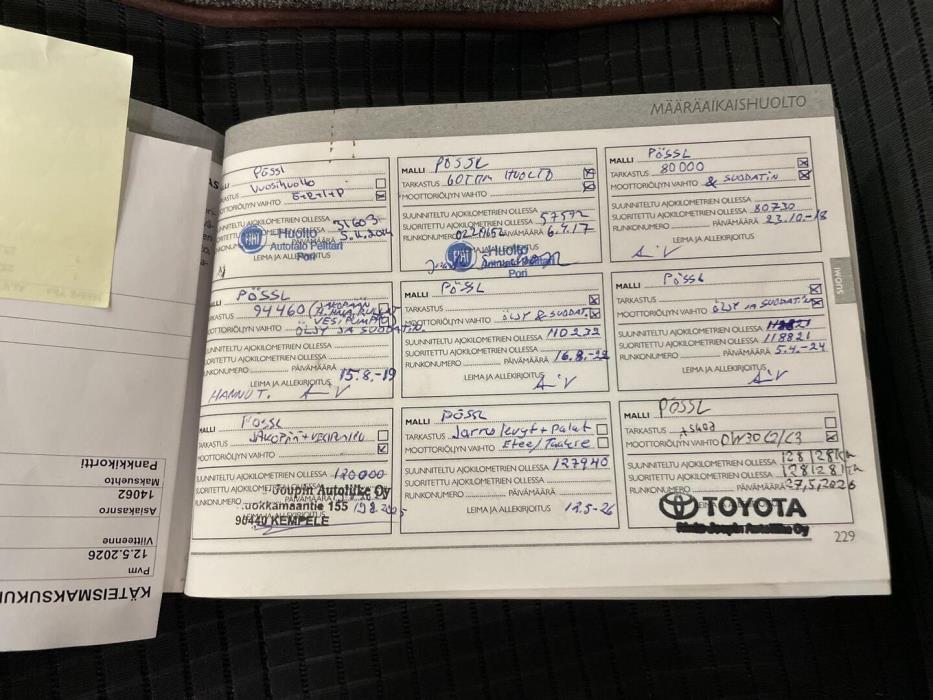 MÄÄRÄAIKAISHUOLTO
PÖSSL
Vuosihuolto
MOOTTORIÖLJYN VAIHTO
SUUNNITELTU AJOKILOMETRIEN OLLESSA
SUORITETTU AJOKILOMETRIEN OLLESSA 31603
PÄIVÄMÄÄRÄ
FIAT Huolto
Autotalo Pelttari
Pori
LEIMA JA ALLEKIRJOITUS
MALLI PÖSSL
TARKASTUS 60Tkm HUOLTO
MOOTTORIÖLJYN VAIHTO
SUUNNITELTU AJOKILOMETRIEN OLLESSA
SUORITETTU AJOKILOMETRIEN OLLESSA 57592
RUNKONUMERO PÄIVÄMÄÄRÄ 6.4.17
FIAT Huolto
Pori
MALLI PÖSSL
TARKASTUS 80000
MOOTTORIÖLJYN VAIHTO & SUODATIN
SUUNNITELTU AJOKILOMETRIEN OLLESSA
SUORITETTU AJOKILOMETRIEN OLLESSA 80730
RUNKONUMERO PÄIVÄMÄÄRÄ 23.10.-18
LEIMA JA ALLEKIRJOITUS
SUOMI
PÖSSL
94460 (JAKOPÄÄN
VESIPUMPPU
MOOTTORIÖLJYN VAIHTO ÖLJY JA SUODATIN.
SUUNNITELTU AJOKILOMETRIEN OLLESSA
SUORITETTU AJOKILOMETRIEN OLLESSA
RUNKONUMERO PÄIVÄMÄÄRÄ
LEIMA JA ALLEKIRJOITUS 15.8.-19
HANNU T.
MALLI PÖSSL
TARKASTUS
MOOTTORIÖLJYN VAIHTO ÖLJY & SUODAT.
SUUNNITELTU AJOKILOMETRIEN OLLESSA 110232
SUORITETTU AJOKILOMETRIEN OLLESSA
RUNKONUMERO PÄIVÄMÄÄRÄ 16.8.-22
LEIMA JA ALLEKIRJOITUS
MALLI PÖSSL
TARKASTUS
MOOTTORIÖLJYN VAIHTO ÖLJY JA SUODATIN
SUUNNITELTU AJOKILOMETRIEN OLLESSA
SUORITETTU AJOKILOMETRIEN OLLESSA 118821
RUNKONUMERO PÄIVÄMÄÄRÄ 5.4.-24
LEIMA JA ALLEKIRJOITUS
MALLI PÖSSL
TARKASTUS JAKOPÄÄ + VESIPUMPPU
MOOTTORIÖLJYN VAIHTO
SUUNNITELTU AJOKILOMETRIEN OLLESSA 120000
SUORITETTU AJOKILOMETRIEN OLLESSA
RUNKONUMERO
Joupin Autoliike Oy
uokkamaantie 155
90440 KEMPELE
MALLI PÖSSL
TARKASTUS Jarrulevyt + Palat
MOOTTORIÖLJYN VAIHTO Etee/Taakse
SUUNNITELTU AJOKILOMETRIEN OLLESSA 127940
SUORITETTU AJOKILOMETRIEN OLLESSA
RUNKONUMERO PÄIVÄMÄÄRÄ
LEIMA JA ALLEKIRJOITUS 12.5-26
MALLI PÖSSL
TARKASTUS
MOOTTORIÖLJYN VAIHTO 0W30 C2/C3
SUUNNITELTU AJOKILOMETRIEN OLLESSA 128128km
SUORITETTU AJOKILOMETRIEN OLLESSA 128128km
RUNKONUMERO PÄIVÄMÄÄRÄ 27,5,2026
TOYOTA
Joupin Autoliike Oy
229
KÄTEISMAKSUKU
Pvm
12.5.2026
Viitteenne
Asiakasnro
14062
Maksuehto
Pankkikortti